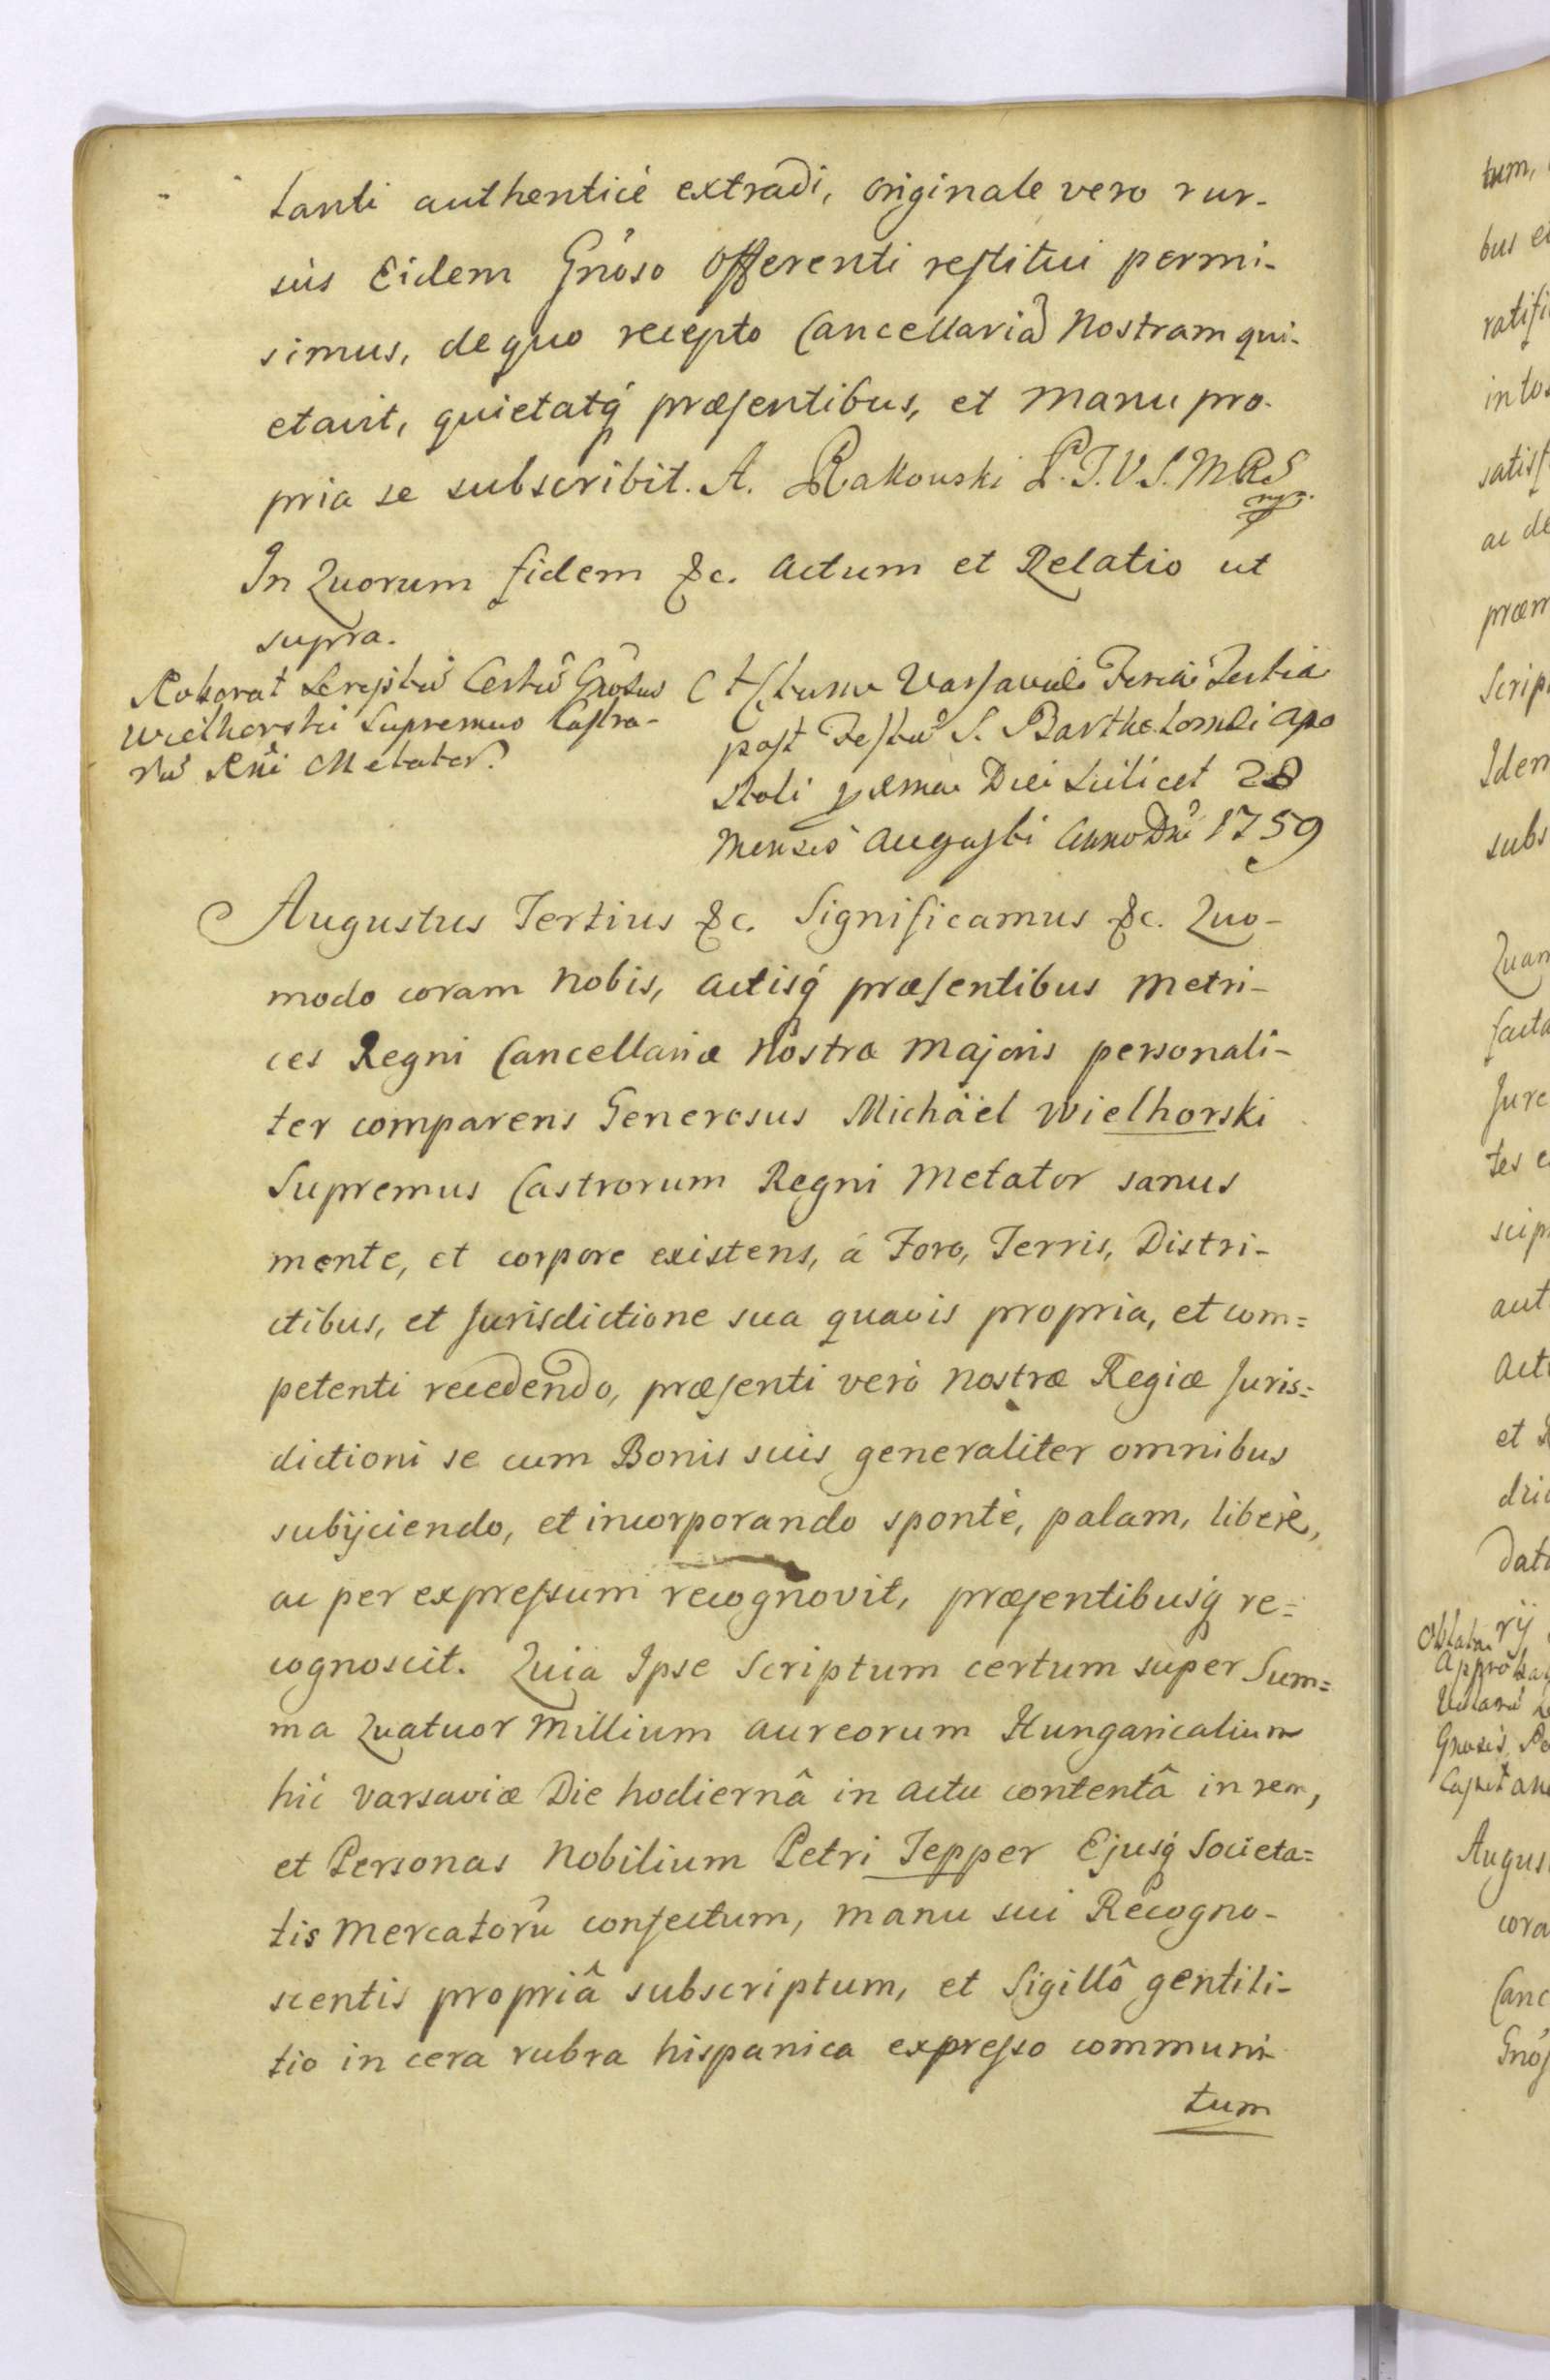 tanti authenticè extradi, originale vero rur-
sùs Eidem Gnoso Offerenti restitui permi-
simus, de quo recepto Cancellariã Nostram qui-
etavit, quietatq́ præsentibus, et manu pro-
pria se subscribit. A. Rakowski P.T.V.S.M.R.S
mp.
In Quorum fidem &c. Actum et Relatio ut
supra.
Roborat Scriptũ Certũ Gnosus
Wielhorski Supremus Castro-
rũ Rni Metator.
Actum Varsaviæ Feria Tertia
post Festũ S. Bartholomæi Apo
stoli Die Scilicet 28
Mensis Augusti Anno Dni 1759
Augustus Tertius &c. Significamus &c. Quo-
modo coram Nobis, Actisq́ præsentibus Metri-
ces Regni Cancellariæ Nostræ Majoris personali-
ter comparens Generosus Michäel Wielhorski
Supremus Castrorum Regni Metator sanus
mente, et corpore existens, á Foro, Terris, Distri-
ctibus, et Jurisdictione sua quavis propria, et com=
petenti recedendo, præsenti verò Nostræ Regiæ Juris=
dictioni se cum Bonis suis generaliter omnibus
subijciendo, et incorporando spontè, palam, liberè,
ac per expressum recognovit, præsentibusq́ re=
cognoscit. Quia Ipse Scriptum certum super Sum=
ma Quatuor Millium Aureorum Hungaricalium
hìc Varsaviæ Die hodiernâ in Actu contentâ in rem,
et Personas Nobilium Petri Tepper Ejusq́ Societa=
tis Mercatorũ confectum, manu sui Recogno-
scentis propriâ subscriptum, et Sigillô gentili-
tio in cera rubra hispanica expresso communi-
tum
tum,
bus et
ratifi
in to
satisf
ac de
præm
Scrip
Idem
subs
Quam
facta
Jure
tes e
scip
aut
Act
et R
dic
Dat
rij
Oblata
Augus
cora
Canc
Gnos